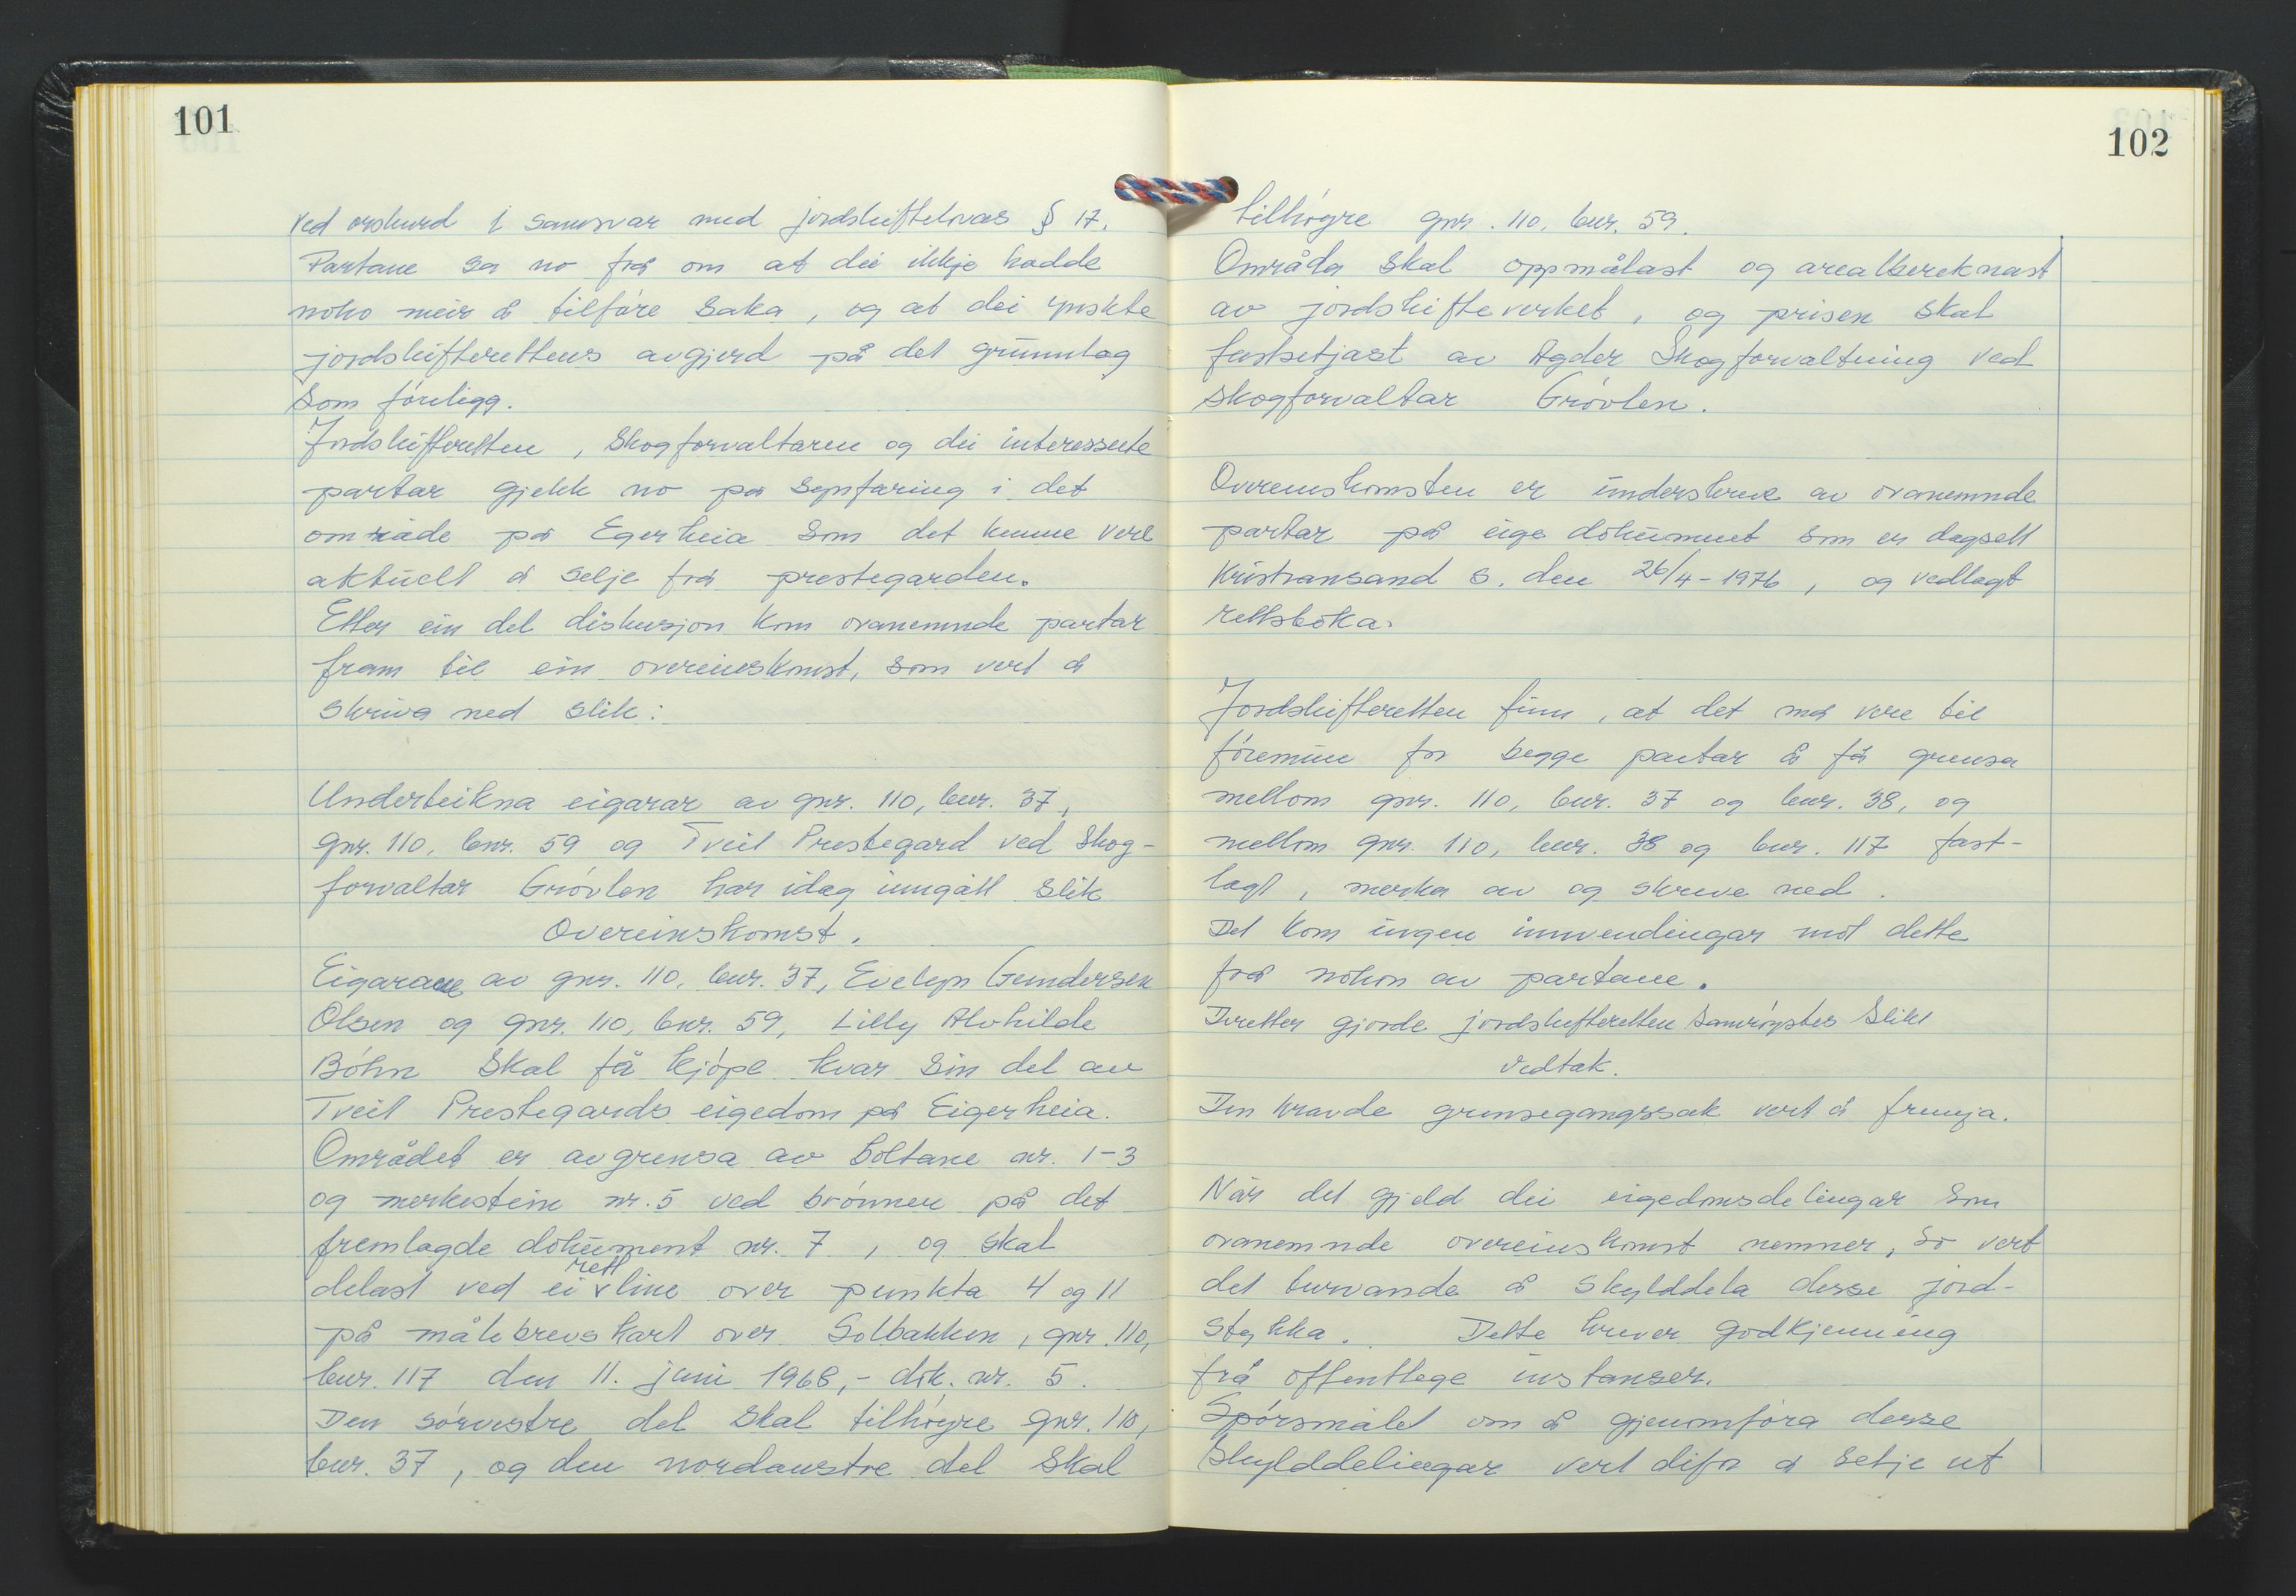 101
ved orskurd i samsvar med jordskiftelovas § 17.
Partane sa no frå om at dei ikkje hadde
noko meir å tilføre saka, og at dei ynskte
jordskifterettens avgjerd på det grunnlag
som føreligg.
Jordskifteretten, skogforvaltaren og dei interesserte
partar gjekk no på synfaring i det
område på Egerheia som det kunne vere
aktuelt å selje frå prestegarden.
Etter ein del diskusjon kom ovanemnde partar
fram til ein overeinskomst, som vert å
skriva ned slik:
Underteikna eigarar av gnr. 110, bnr. 37,
gnr. 110, bnr. 59 og Tveit Prestegard ved Skog-
forvaltar Grövlen har idag inngått slik
Overeinskomst.
Eigarane av gnr. 110, bnr. 37, Evelyn Gundersen
Olsen og gnr. 110, bnr. 59, Lilly Alvhilde
Böhn skal få kjøpe kvar sin del av
Tveit Prestegards eigedom på Eigerheia.
Området er avgrensa av boltane nr. 1-3
og merkestein nr. 5 ved brønnen på det
fremlagde dokument nr. 7, og skal
delast ved ei rett line over punkta 4 og 11
på målebrevskart over Solbakken, gnr. 110,
bnr. 117 den 11. juni 1968,- dok. nr. 5.
Den sørvestre del skal tilhøyre gnr. 110,
bnr. 37, og den nordaustre del skal
102
tilhøyre gnr. 110, bnr. 59.
Områda skal oppmålast og arealbereknast
av jordskifteverket, og prisen skal
fastsetjast av Agder Skogforvaltning ved
skogforvaltar Grövlen.
Overeinskomsten er underskreve av ovanemnde
partar på eige dokument som er dagsett
Kristiansand S. den 26/4-1976, og vedlagt
rettsboka.
Jordskifteretten finn, at det må vere til
føremun for begge partar å få grensa
mellom gnr. 110, bnr. 37 og bnr. 38, og
mellom gnr. 110, bnr. 38 og bnr. 117 fast-
lagt, merka av og skreve ned.
Det kom ingen innvendingar mot dette
frå nokon av partane.
Deretter gjorde jordskifteretten samrøystes slikt
Vedtak.
Den kravde grensegangssak vert å fremja.
Når det gjeld dei eigedomsdelingar som
ovanemnde overeinskomst nemner, so vert
det turvande å skylddela desse jord-
stykka. Dette krever godkjenning
frå offentlege instanser.
Spørsmålet om å gjenomføra desse
skylddelingar vert difor å setje ut